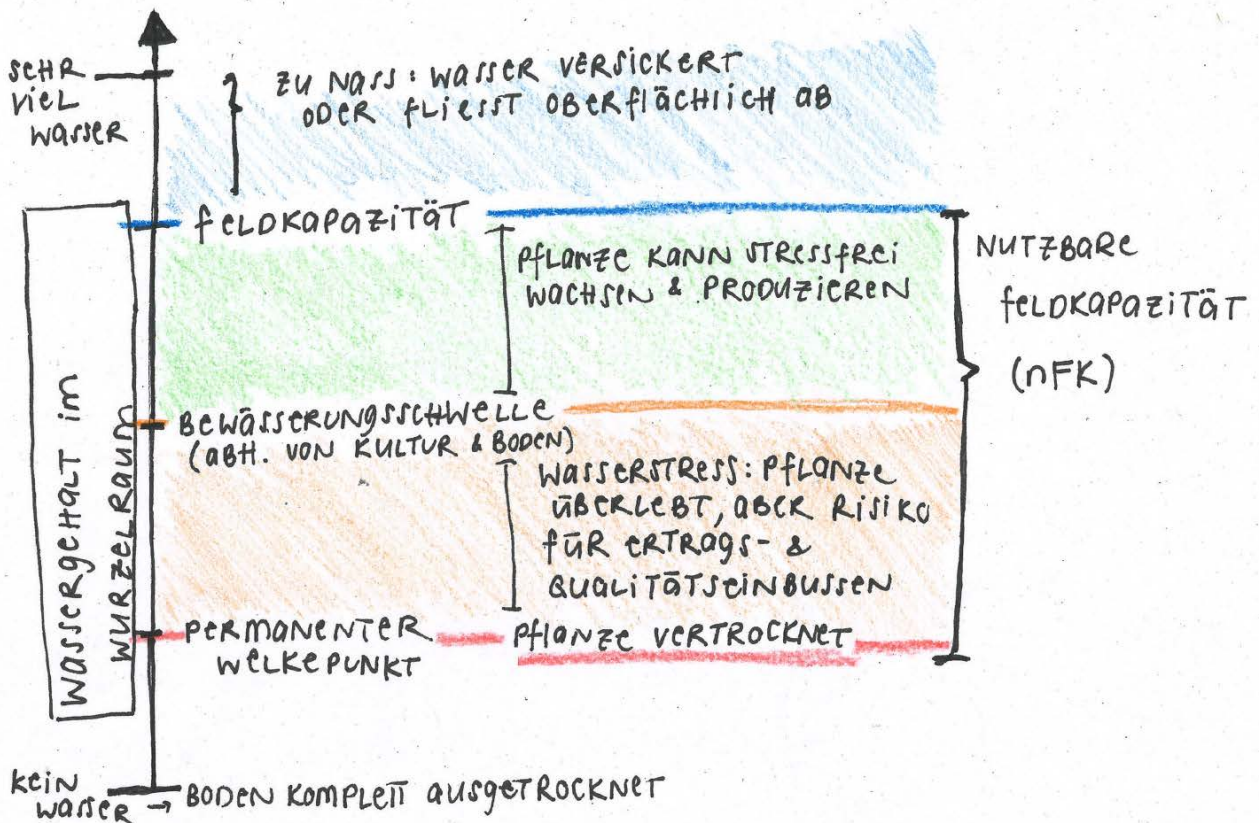 SEHR
VIEL
WASSER
ZU NASS: WASSER VERSICKERT
ODER FLIESST OBERFLÄCHLICH AB
FELDKAPAZITÄT
PFLANZE KANN STRESSFREI
WACHSEN & PRODUZIEREN
NUTZBARE
FELDKAPAZITÄT
(nFK)
WASSERGEHALT IM
WURZELRAUM
BEWÄSSERUNGSSCHWELLE
(ABH. VON KULTUR & BODEN)
WASSERSTRESS: PFLANZE
ÜBERLEBT, ABER RISIKO
FÜR ERTRAGS- &
QUALITÄTSEINBUSSEN
PERMANENTER
WELKEPUNKT
PFLANZE VERTROCKNET
KEIN
WASSER → BODEN KOMPLETT AUSGETROCKNET